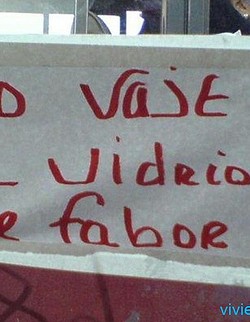 o vaje
l vidrio
e fabor
vivie